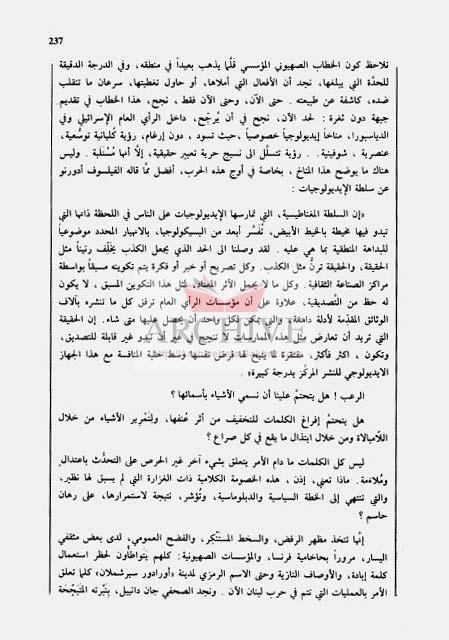 237
نلاحظ كون الخطاب الصهيوني المؤسسي قلَّما يذهب بعيداً في منطقه، وفي الدرجة الدقيقة
للحدَّة التي يبلغها، نجد أن الأفعال التي أملاها، أو حاول تغطيتها، سرعان ما تنقلب
ضده، كاشفة عن طبيعته . حتى الآن، وحتى الآن فقط ، نجح، هذا الخطاب في تقديم
جبهة دون ثغرة : لحد الآن، نجح في أن يُرجِّح، داخل الرأي العام الإسرائيلي وفي
الدياسبورا، مناخاً إيديولوجياً خصوصياً ، حيث تسود ، دون إرغام، رؤية كُليانية توسُّعية،
عنصرية ، شوفينية. . رؤية تتسلَّل الى نسيج حرية تعبير حقيقية، إلاَّ أنها مُسْتَلَبة . وليس
هناك ما يوضح هذا المناخ ، بخاصة في أوج هذه الحرب، أفضل ممَّا قاله الفيلسوف أدورنو
عن سلطة الإيديولوجيات :
«إن السلطة المغناطيسية، التي تمارسها الإيديولوجيات على الناس في اللحظة ذاتها التي
تبدو فيها مخيطة بالخيط الأبيض، تُفسَّر أبعد من السيكولوجيا، بالانهيار المحدد موضوعياً
للبداهة المنطقية بما هي عليه . لقد وصلنا الى الحد الذي يجعل الكذب يخلِّف رنيناً مثل
الحقيقة، والحقيقة ترنُّ مثل الكذب. وكل تصريح أو خبر أو فكرة يتم تكوينه مسبقاً بواسطة
مراكز الصناعة الثقافية . وكل ما لا يحمل الأثر المعتاد، لمثل هذا التكوين المسبق ، لا يكون
له حظ من التَّصديقية، علاوة على أن مؤسسات الرأي العام ترفق كل ما تنشره بآلاف
الوثائق المقدَّمة لأدلة دامغة، والتي يمكن لكل واحد أن يحصل عليها متى شاء. إن الحقيقة
التي تريد أن تعارض مثل هذه الممارسات لا تنجح في غير أن تبدو غير قابلة للتصديق،
وتكون ، اكثر فأكثر، مفتقرة لما يتيح لها فرض نفسها وسط حلبة المنافسة مع هذا الجهاز
الايديولوجي للنشر المركَّز بدرجة كبيرة».
ARCHIVE
الرعب ! هل يتحتمَّ علينا أن نسمي الأشياء بأسمائها ؟
هل يتحتمَّ إفراغ الكلمات للتخفيف من أثر عُنفها، ولتَمْرِير الأشياء من خلال
اللاَّمبالاة ومن خلال ابتذال ما يقع في كل صراع ؟
ليس كل الكلمات ما دام الأمر يتعلق بشيء آخر غير الحرص على التحدُّث باعتدال
ومُلاءمة. ماذا تعني، إذن ، هذه الخصومة الكلامية ذات الغزارة التي لم يسبق لها نظير،
والتي تنتهي إلى الخطة السياسية والدبلوماسية، وتُؤشر، نتيجة لاستمرارها، على رهان
حاسم ؟
إنَّها تتخذ مظهر الرفض، والسخط المستَنْكر، والفضح العمومي، لدى بعض مثقفي
اليسار، مروراً بحاخامية فرنسا، والمؤسسات الصهيونية: كلهم يَتواطأون لحظر استعمال
كلمة إبادة، والأوصاف النازية وحتى الاسم الرمزي لمدينة «أورادور سيرشملان» كلما تعلق
الأمر بالعمليات التي تتم في حرب لبنان الآن . ونجد الصحفي جان دانييل، بنَبْرته المُتَبَجِّحة